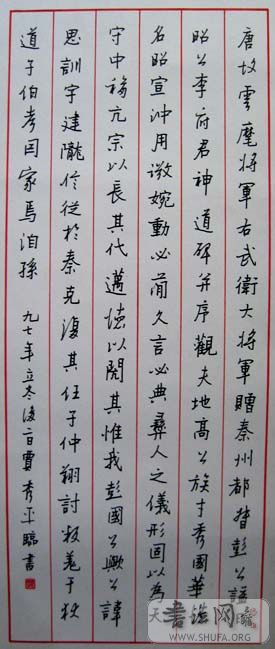 唐故雲麾將軍右武衛大將軍贈秦州都督彭公謚
昭公李府君神道碑并序觀夫地高公族才秀國華
名昭宣沖用微婉動必簡久言必典彝人之儀形固以為
守中移亢宗以長其代邁德以閱其惟我彭國公歟公諱
思訓字建隴佇從於秦克復其任子仲翔討叛羌于狄
道子伯考因家焉洎孫
九七年立冬後二日賈秀平臨書
WWW.SHUFA.ORG